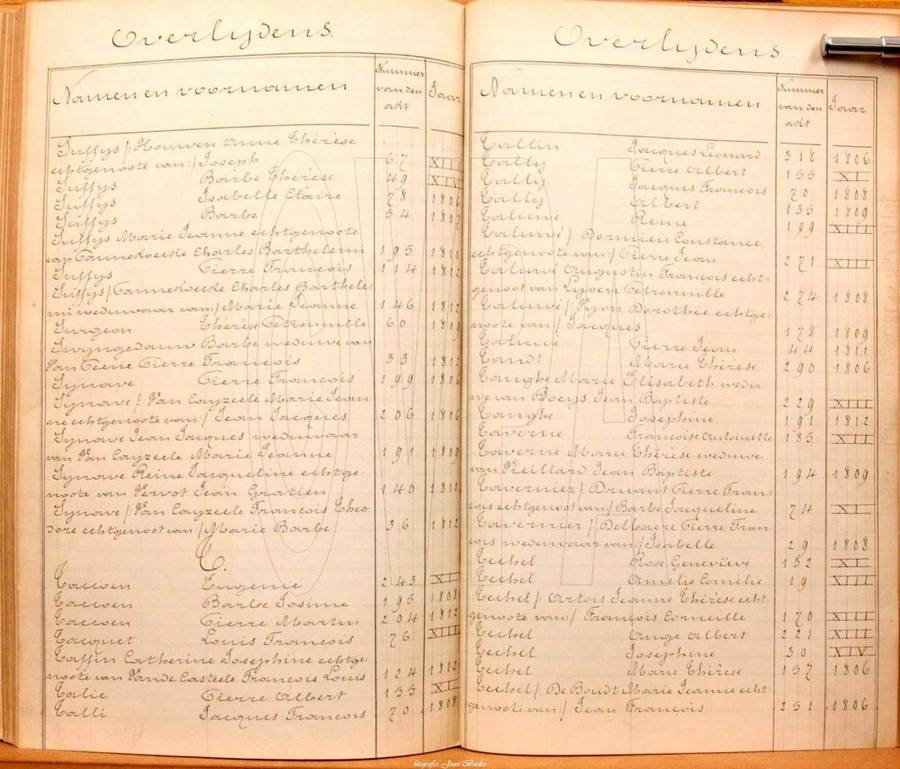 Overlijdens.
Namen en voornamen
Nummer van den akt
Jaar
Suffys /: Houwen Anne Thérèse
echtgenoote van :/ Joseph 67 XII
Suffys Barbe Thérèse 49 XIV
Suffys Isabelle Claire 78 1806
Suffys Barbe 54 1807
Suffys Marie Jeanne echtgenoote
van Vanneloeede Charles Barthelemi 195 1810
Suffys Pierre François 114 1812
Suffys /: Charles Barthele-
mi weduwaar van :/ Marie Jeanne 146 1812
Surgeon Thérèse Petronille 60 1809
Swyngedauw Barbe weduwe van
Van Pierre François 33 1812
Synave Pierre François 199 1806
Synave /: Van Cayzeele Marie Jean-
ne echtgenoote van :/ Jean Jacques 206 1806
Synave Jean Jacques weduwaar
van Van Cayzeele Marie Jeanne 191 1809
Synave Reine Jacqueline echtge-
noote van Pervot Jean Gratien 140 1810
Synave /: Van Cayzeele François Theo-
dore echtgenoot van :/ Marie Barbe 36 1812
T.
Taccoen Eugenie 243 XII
Taccoen Barbe Josime 195 1808
Taccoen Pierre Martin 204 1812
Tacquet Louis François 76 XIII
Taffin Catherine Josephine echtge-
noote van Vande Casteele François Louis 124 1812
Talie Pierre Albert 155 XI
Talli Jacques François 70 1808
Overlijdens
Namen en voornamen
Nummer van den akt
Jaar
Tallin Jacques Léonard 318 1806
Tally Pierre Albert 155 XI
Tally Jacques François 70 1808
Tally Albert 135 1809
Talume Reine 199 XIII
Talumé /: Dormieu Constance
echtgenoote van :/ Pierre Jean 271 XIII
Talumé Augustin François echt-
genoot van Petronille 274 1808
Talumé /: Dorothée echtge-
noote van :/ Jacques 178 1809
Talumé Pierre Jean 44 1811
Tandt Marie Thérèse 290 1806
Tanghe Marie Elisabeth wedu-
we van Boeys Jean Baptiste 229 XIII
Tanghe Josephine 191 1812
Taverne Françoise Antoinette 185 XII
Taverne Marie Thérèse weduwe
van Vieillard Jean Baptiste 194 1809
Tavernier /: Druant Pierre Fran-
çois echtgenoot van :/ Barbe Jacqueline 74 XI
Tavernier /: Pierre Fran-
çois weduwaar van :/ Isabelle 29 1808
Techel Rose Geneviève 152 XII
Techel Amelie Cornélie 19 XIII
Techel /: Artois Jeanne Thérèse echt-
genoote van :/ François Corneille 170 XIII
Techel Ange Albert 221 XIII
Techel Josephine 30 XIV
Techel Marie Thérèse 157 1806
Techel /: De Boudt Marie Jeanne echt-
genoote van :/ Jean François 251 1806